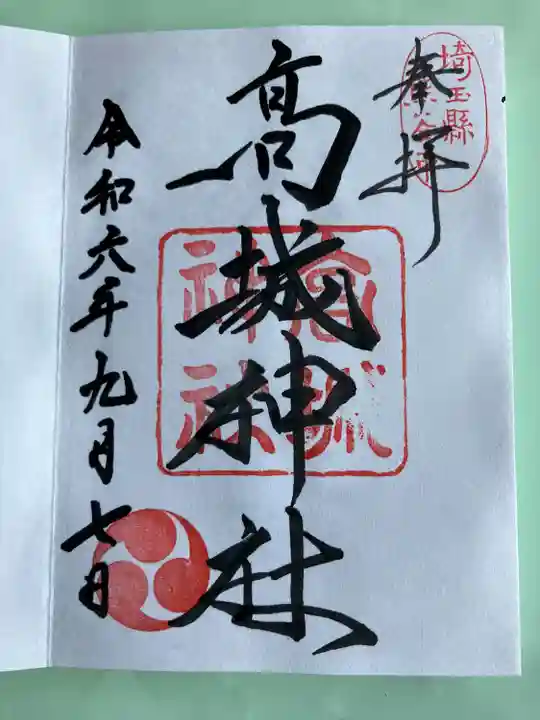 奉拝
埼玉縣
高城神社
高城神社
令和六年九月七日